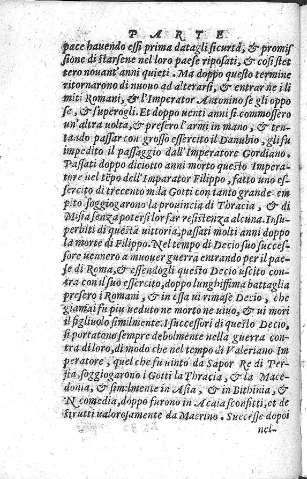 PARTE
pace hauendo essi prima datagli sicurtà, & promis
sione di starsene nel loro paese riposati, & così stet
tero nouant'anni quieti. Ma doppo questo termine
ritornarono di nuouo ad alterarsi, & entrar ne i li
miti Romani, & l'Imperator Antonino se gli oppo
se, & superogli. Et dopo uenti anni si commossero
un'altra uolta, & presero l'armi in mano, & ten-
tādo passar con grosso essercito il Danubio, gli fu
impedito il passaggio dall'Imperatore Gordiano.
Passati doppo diciotto anni morto questo Impera-
tore nel tēpo dell'Imparator Filippo, fatto uno es-
sercito di trecento mila Gotti con tanto grande im
pito soggiogarono la prouincia di Thracia, & di
Misia senza potersi lor far resistenza alcuna. Insu-
perbiti di questa uittoria, passati molti anni doppo
la morte di Filippo. Nel tempo di Decio suo succes-
sore uennero a muouer guerra entrando per il pae-
se di Roma, & essendogli questo Decio uscito con-
tra con il suo essercito, doppo lunghissima battaglia
presero i Romani, & in essa ui rimase Decio, che
giamai fu piu ueduto ne morto ne uiuo, & ui morì
il figliuolo similmente. I successori di questo Decio,
si portatono sempre debolmente nella guerra con-
tra di loro, di modo che nel tempo di Valeriano Im
peratore, quel che fu uinto da Sapor Re di Per-
sia, soggiogarono i Gotti la Thracia, & la Mace-
donia, & similmente in Asia, & in Bithinia, &
Nicomedia, doppo furono in Acaia sconfitti, et de
strutti ualorosamente da Macrino. Successe dopoi
nel-